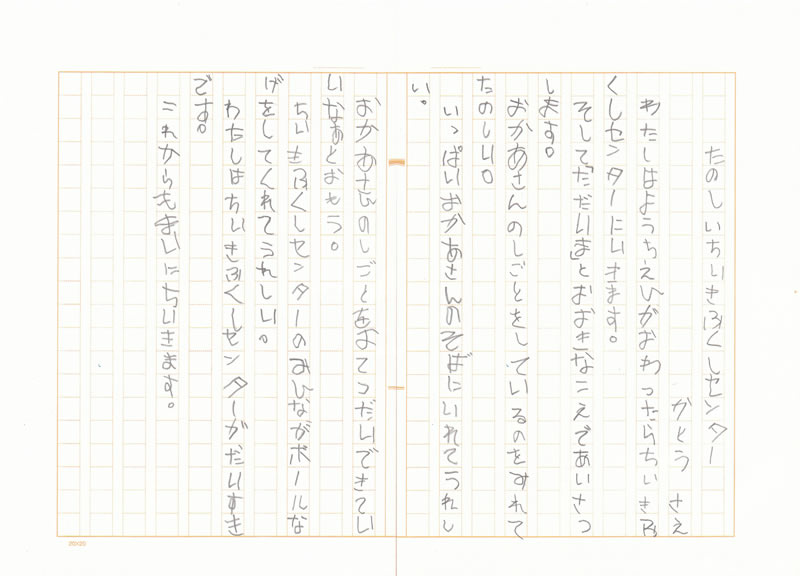 たのしいちいきふくしセンター
かとう さえ
わたしはようちえんがおわったらちいきふ
くしセンターにいきます。
そして「ただいま」とおおきなこえであいさつ
します。
おかあさんのしごとをしているのをみれて
たのしい。
いっぱいおかあさんのそばにいれてうれし
い。
おかあさんのしごとをおてつだいできてい
いなあとおもう。
ちいきふくしセンターのみんながボールな
げをしてくれてうれしい。
わたしはちいきふくしセンターがだいすき
です。
これからもまいにちいきます。
20×20